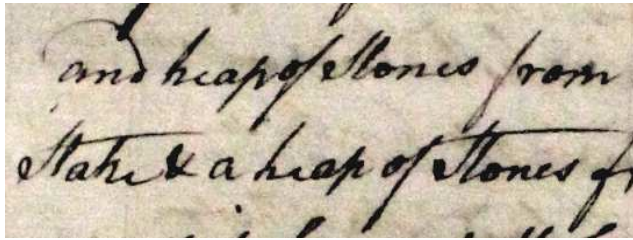 and heap of Stones from
Stake & a heap of Stones